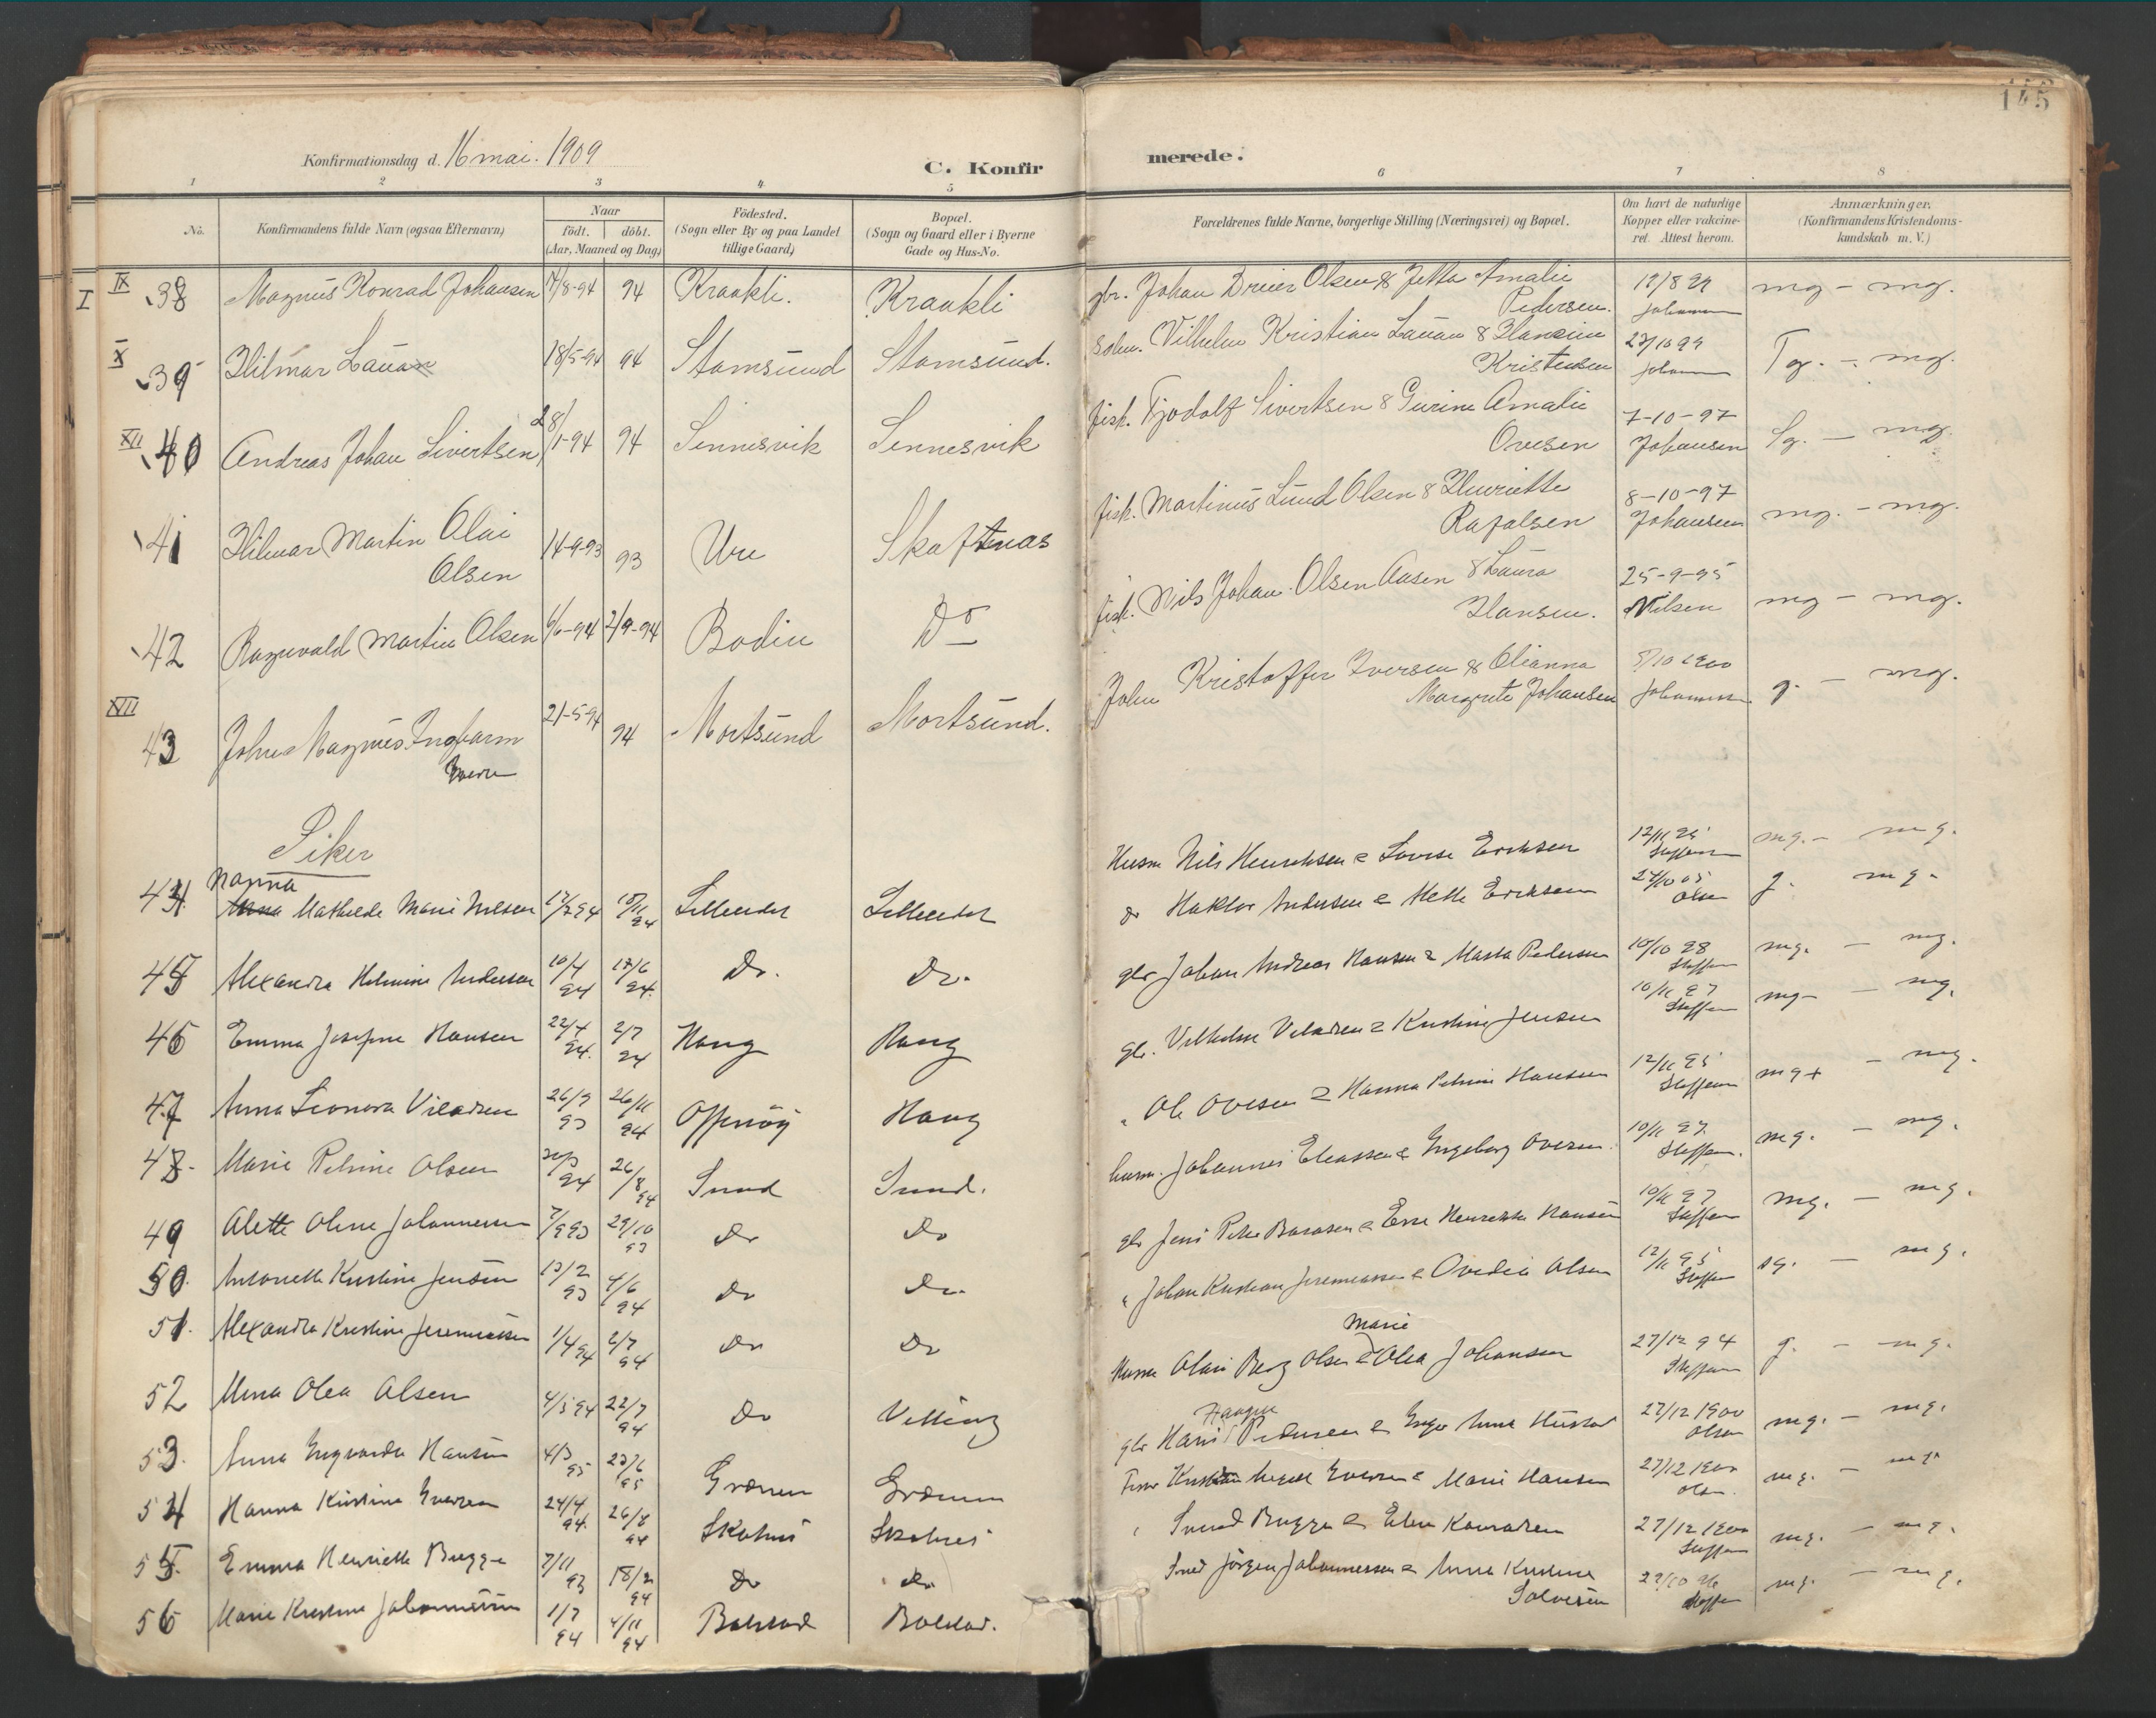 145
Konfirmationsdag d. 16 mai. 1909
C. Konfirmerede.
1 2 3 4 5 6 7 8
No.
Konfirmandens fulde Navn (ogsaa Efternavn)
Naar
födt. döbt.
(Aar, Maaned og Dag)
Födested.
(Sogn eller By og paa Landet
tillige Gaard)
Bopæl.
(Sogn og Gaard eller i Byerne
Gade og Hus-No.
Forældrenes fulde Navne, borgerlige Stilling (Næringsvei) og Bopæl.
Om havt de naturlige
Kopper eller vakcine-
ret. Attest herom.
Anmærkninger.
(Konfirmandens Kristendoms-
kundskab m. V.)
I IX 38 Magnus Konrad Johansen 17/8-94 94 Kraakli. Kraakli gbr. Johan Dreier Olsen & Jetta Amalie 12/8 99 mg - mg.
Pedersen.
X 39 Hilmar Lauan 18/5-94 94 Stamsund Stamsund. Vilhelm Kristian Lauan & Hansine 27/10 99 Tg. - mg.
Kristensen
XII 40 Andreas Johan Sivertsen 28/1-94 94 Sennesvik Sennesvik fisk. Tjodolf Sivertsen & Gurine Amalie 7-10-97 Sg. - mg.
Ovesen Johansen
41 Hilmar Martin Olai 14-9-93 93 Ure Skaftnas fisk. Martinus Lund Olsen & Henriette 8-10-97 mg. - mg.
Olsen Rafalsen Johansen
42 Ragnvald Martin Olsen 6/6-94 2/9-94 Bodin Do fisk. Nils Johan Olsen Aasen & Laura 25-9-95 mg - mg.
Hansen. Nilsen
XIII 43 Johns Magnus Ingbarm 21-5-94 94 Mortsund Mortsund. John Kristoffer Iversen & Olianna 5/10 1900 g. - mg.
Iversen Margrete Johansen Johannessen
Piker
44. Nanna Mathilde Marie Nilsen 17/7 94 18/11 94 Husm Nils Henriksen & Lovise Eriksen 12/11 95 mg. - mg.
Steffensen
45 Alexandra Helmine Andersen 10/4 94 17/6 94. Do. Do. do Haktor Andersen & Mette Eriksen 24/10 05 g. mg.
Olsen
46 Emma Josefine Hansen 22/4 94. 2/7 94 Haug Haug gbr Johan Andreas Hansen & Marta Pedersen 10/10 98 mg. - mg.
Steffensen
47 Anna Leonora Viladsen 26/9 93 26/11 94 Offersøy Haug gbr. Vilhelm Viladsen & Kristine Jensen 10/11 97 mg - mg.
Steffensen
48. Marie Petrine Olsen 94 26/8 94 Sund Sund. " Ole Ovesen & Hanna Petrine Hansen 12/11 95 mg+ - mg.
Steffensen
49 Alette Oline Johannessen 7/9 93 29/10 93 Do Do husm. Johannes Eleassen & Ingeborg Ovesen 10/11 97. mg. - mg.
Steffensen.
50. Antonette Kristine Jensen 13/2 93 4/6 94 Do Do. gbr Jens Peter Baradsen & Erse Henrikke Hansen 10/11 97 mg. - mg.
Steffensen
51. Alexandra Kristine Jeremiassen 1/4 94 2/7 94 Do Do " Johan Kristian Jeremiassen & Ovedia Olsen 12/11 95 sg. - mg.
Steffensen
52 Anna Olea Olsen 4/5 94 22/7 94 Do Husm Olai Berg Olsen & Marie Olea Johansen 27/12 94 g. - mg.
Steffensen
53. Anna Ingvarda Hansen 4/3 95 23/6 95 gbr Hans Haagen Pedersen & Inger Anna 27/12 1900 mg. - mg.
Olsen
54 Hanna Kristine Iversen 24/4 94. 26/8 94 & Marie Hansen 27/12 1900 mg. - mg.
Olsen.
55. Emma Henriette Bugge 7/11 93 18/2 94 Do Do Bugge & Elen Konradsen 27/12 1900 mg. - mg.
Steffensen
56 Marie Kristine Johannessen 1/7 94 4/11 94 Balstad Balstad. Jørgen Johannessen & Anna Kristine mg. - mg.
Solvesen